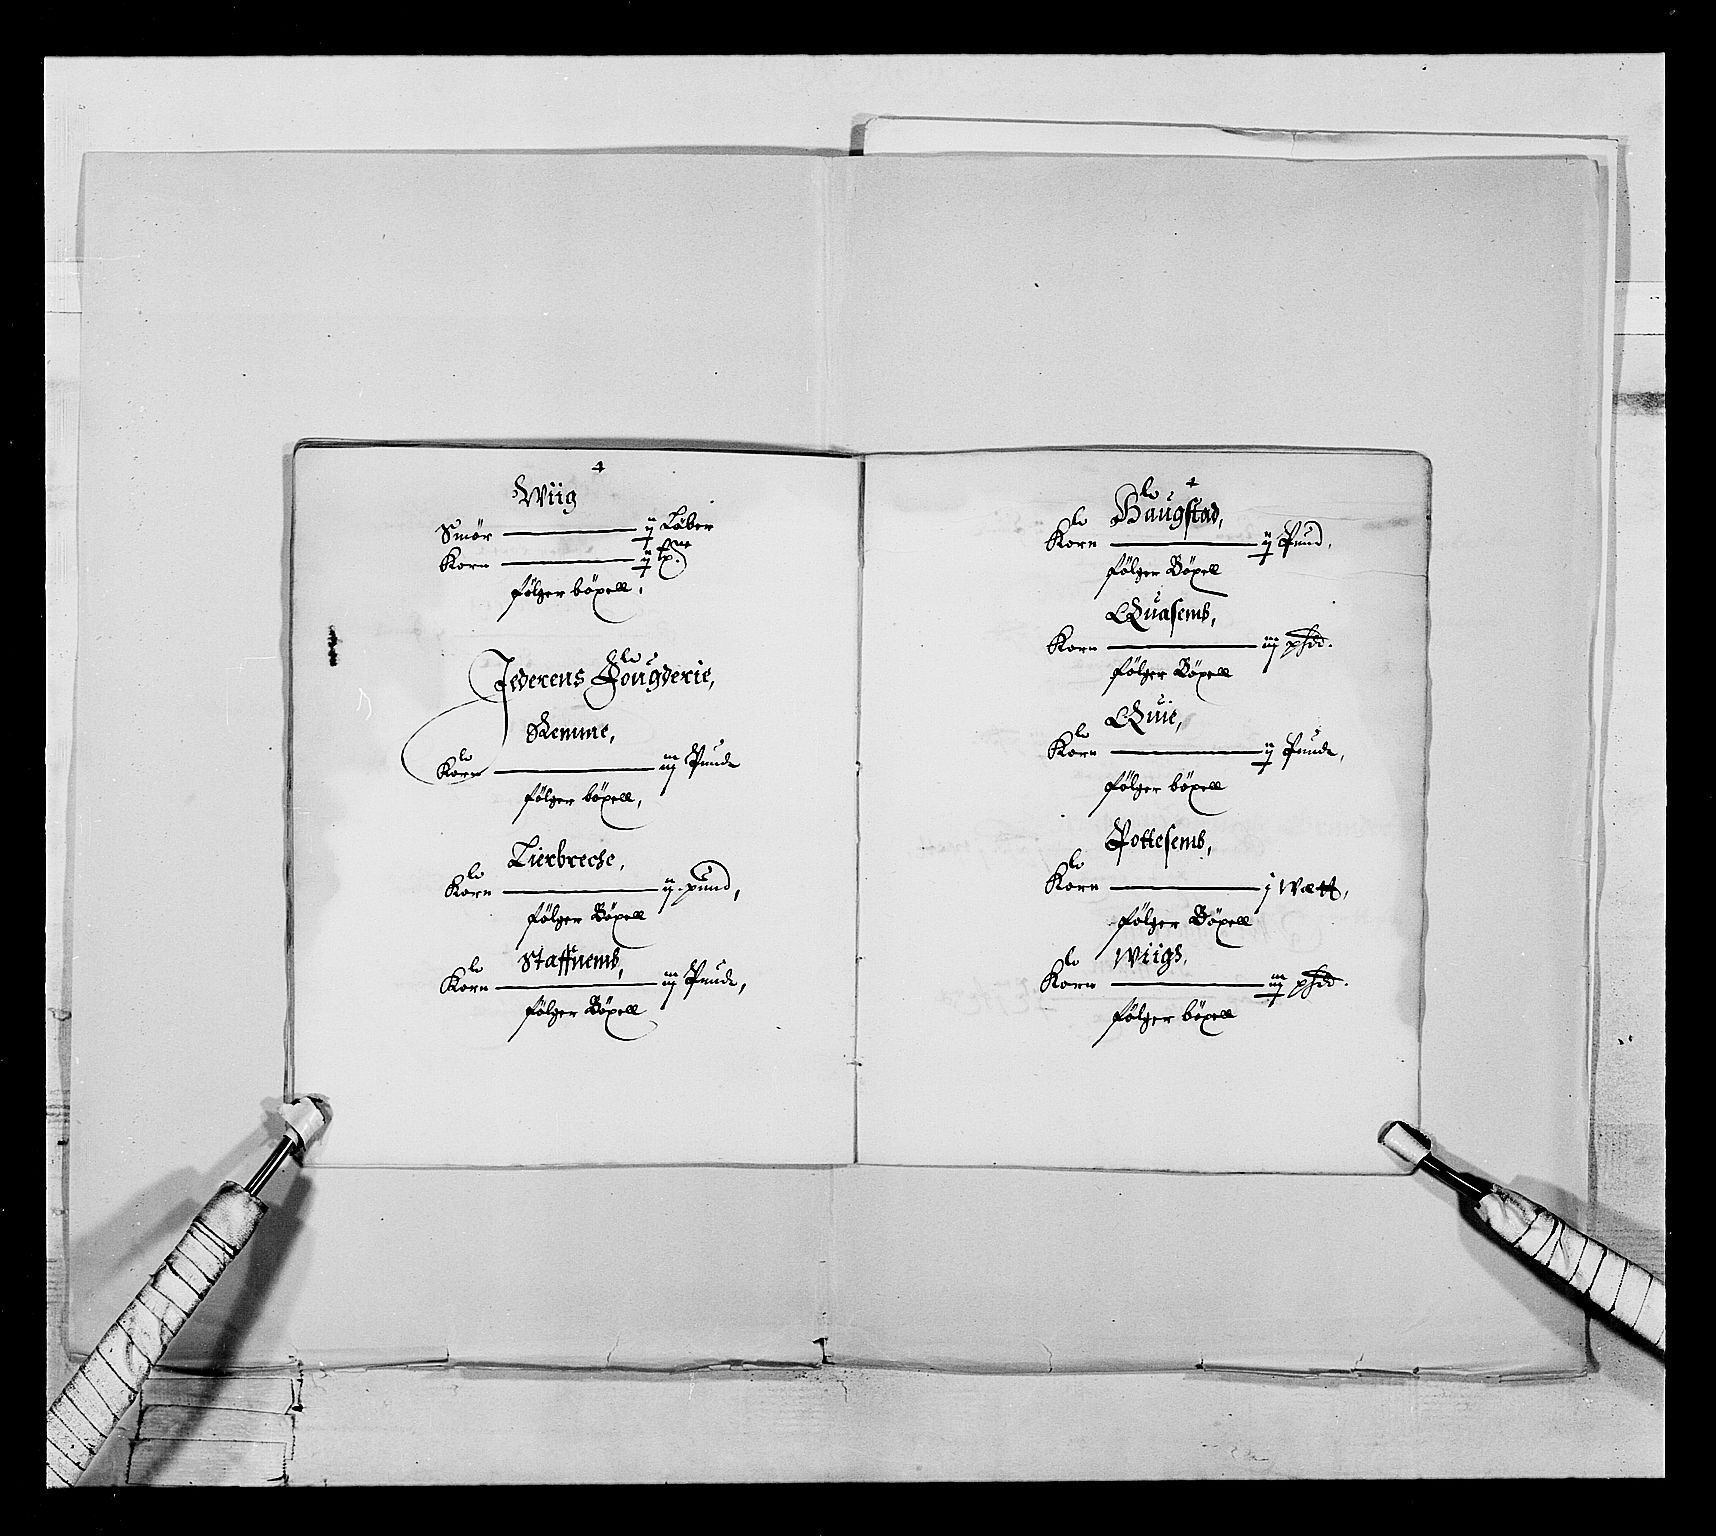 4
Wiig
Smör — ij Løber
Korn — ij
følger böxell,
Jederens Fougderie,
Remme,
Korn — iiij Punde
følger böxell,
Lierbreche,
Korn — ij pund,
følger Böxell
Staffnemb,
Korn — iiij Punde,
følger Böxell
4
Haugstad,
Korn — ij Pund.
følger Böxell
Quasemb,
Korn — iij
følger Böxell
Quie,
Korn — ij Punde,
følger böxell
Pottesemb,
Korn — j Wætt,
følger Böxell
Wiigs,
Korn — iiij
følger böxell